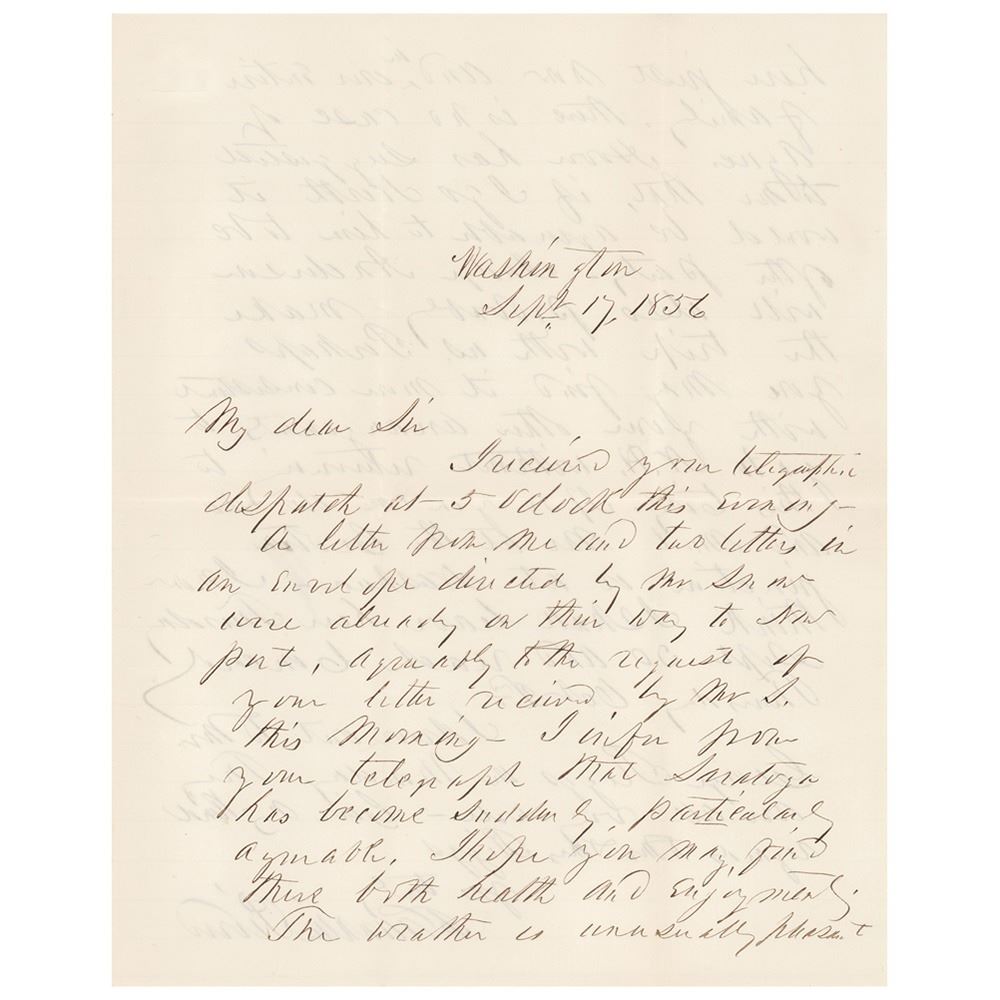 Washington
Sept. 17, 1856
My dear Sir
I received your telegraphic
dispatch at 5 O'clock this Evening—
A letter from me and two letters in
an Envelope directed by Mr Snow
were already on their way to New
port, agreeably to the request of
your letter received by Mr S.
this Morning— I infer from
your telegraph that Saratoga
has become suddenly particularly
agreeable. I hope you may find
there both health and enjoyment.
The weather is unusually pleasant